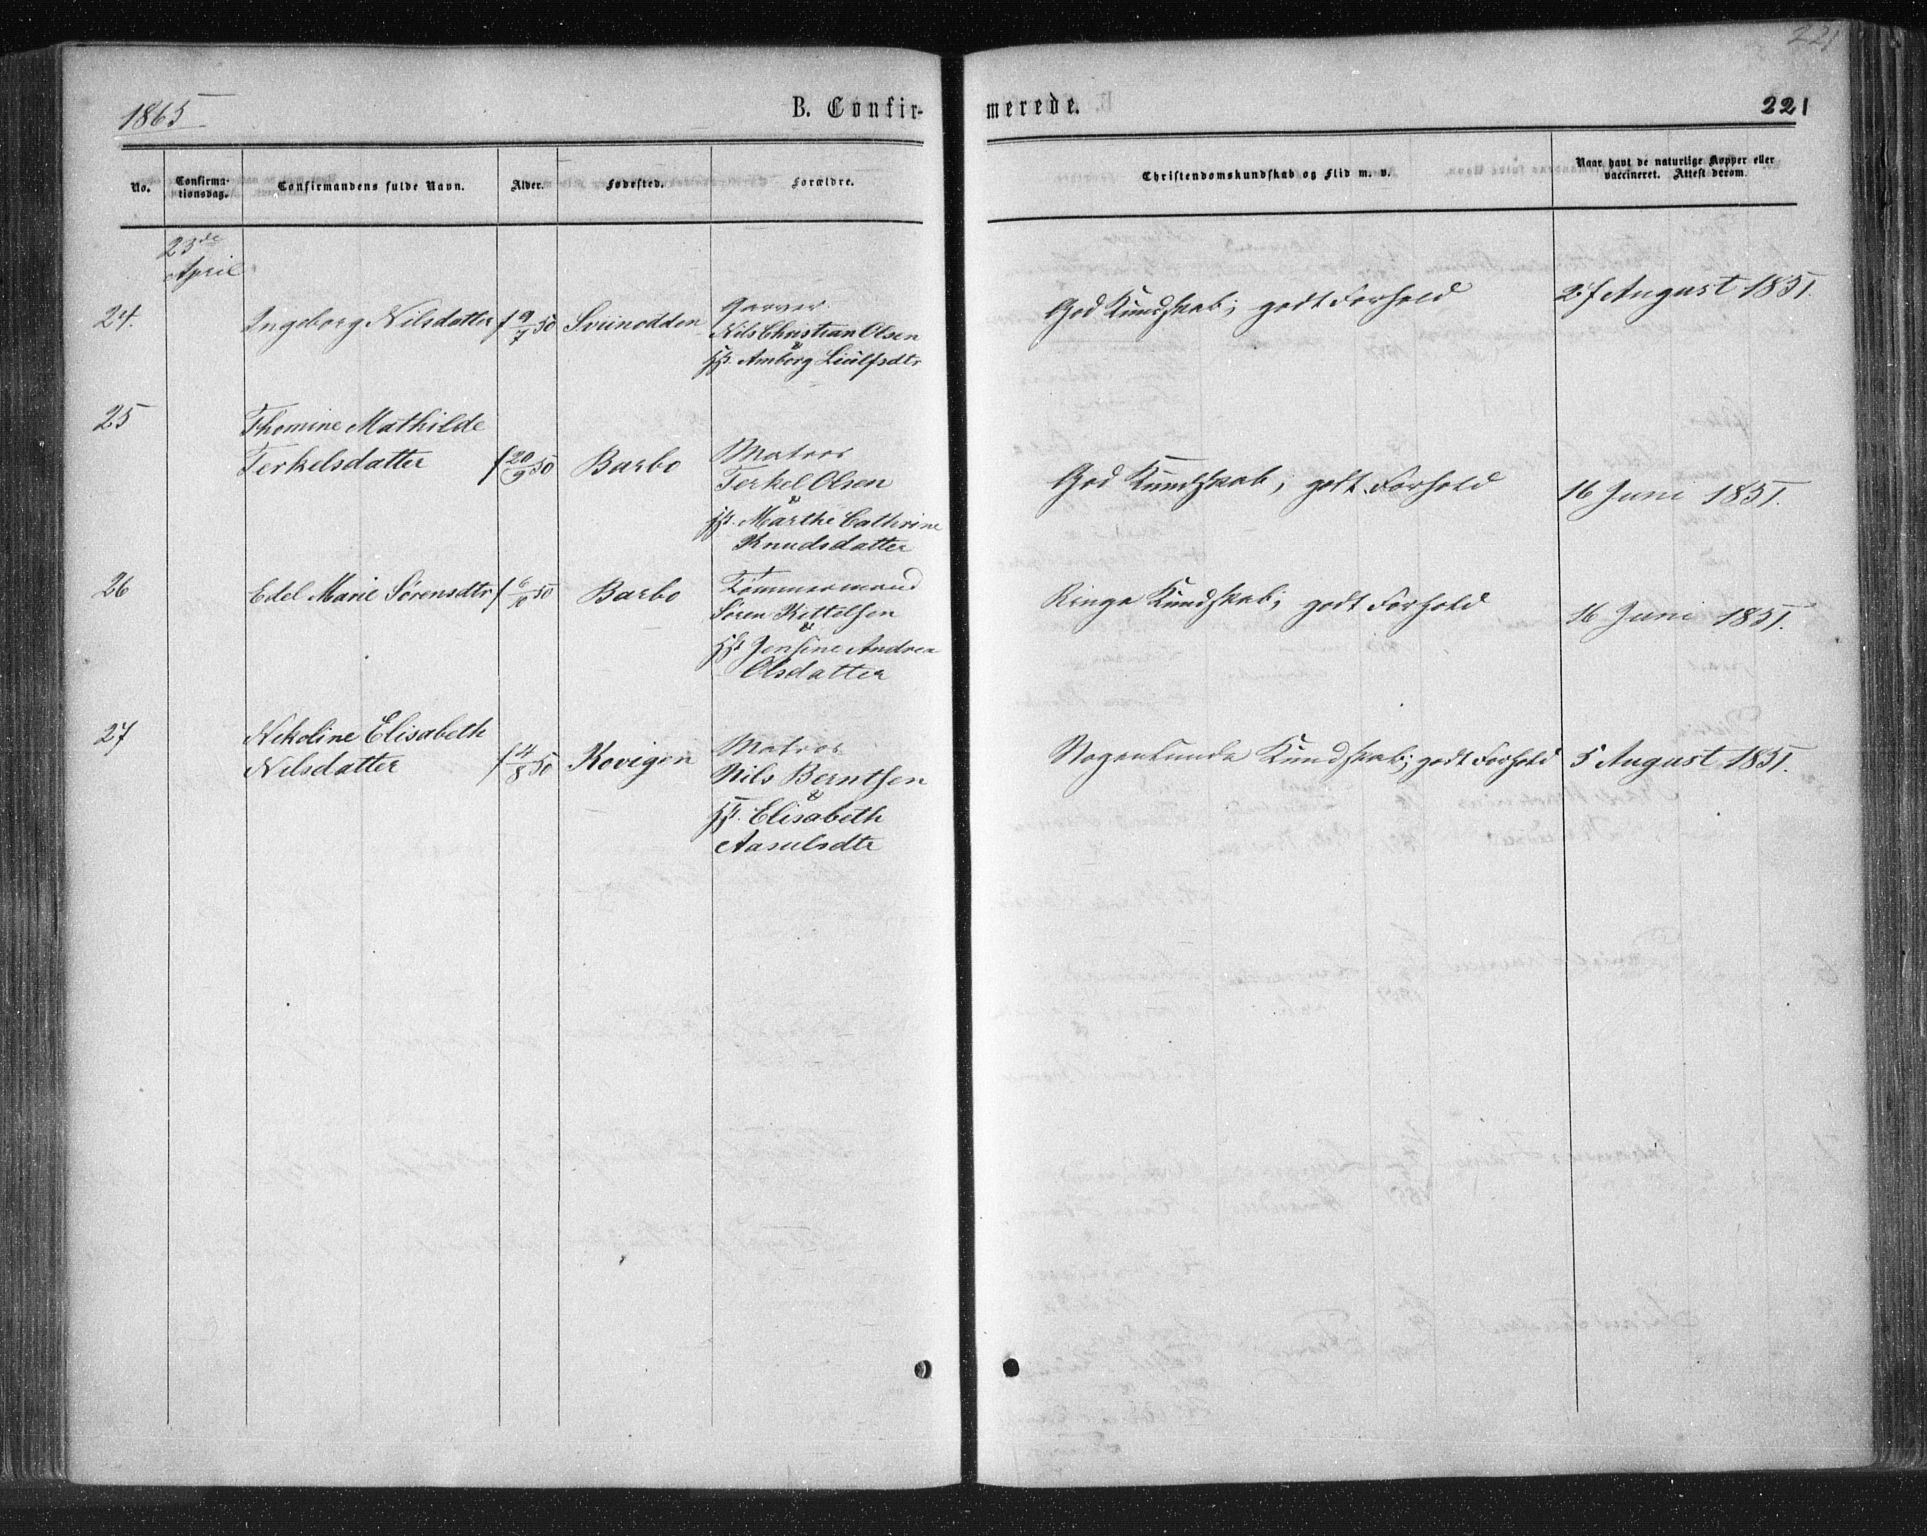 221
1865
B. Confir-
merede.
221
No.
Confirma-
tionsdag.
Confirmandens fulde Navn.
Alder.
Fødested.
Forældre.
Christendomskundskab og Flid m. v.
Naar havt de naturlige Kopper eller
vaccineret. Attest derom.
23de
April
24. Ingeborg Nilsdatter f 9/7 50 Sviinodden
Garver
Nils Christian Olsen
&
H. Amborg Liulfsdtr
God Kundskab; godt Forhold
27 August 1851.
25
Thomine Mathilde
Terkelsdatter f 20/9 50 Barbo
Matros
Terkel Olsen
&
H. Marthe Cathrine
Knudsdatter
God Kundskab; godt Forhold
16 Juni 1851.
26
Edel Marie Sørensdtr f 6/10 50 Barbo
Tømmermand
Søren Kittelsen
&
H. Jensine Andrea
Olsdatter
Ringe Kundskab; godt Forhold
16 Juni 1851.
27
Nikoline Elisabeth
Nilsdatter f 4/8 50 Kovigen
Matros
Nils Berntsen
&
H. Elisabeth
Aasulsdtr
Nogenlunde Kundskab; godt Forhold
5 August 1851.